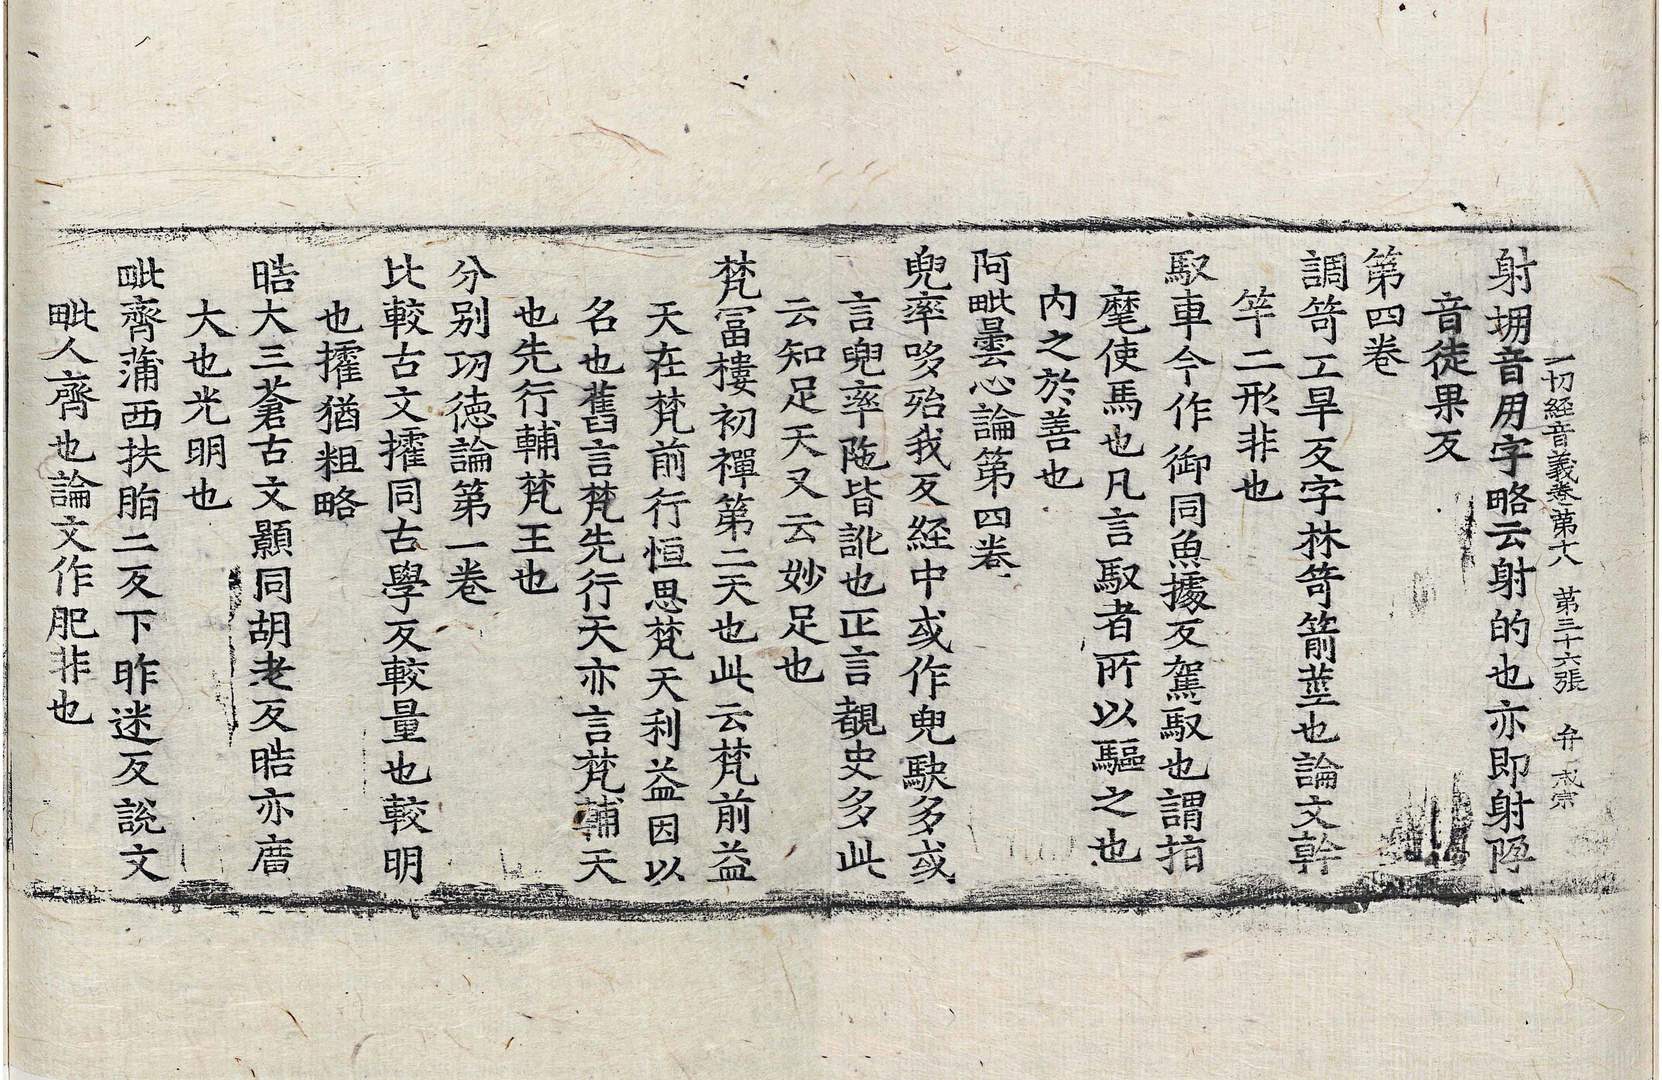 一切經音義卷第十八 第三十六張 弁 戒宗
射堋音用字略云射的也亦即射陊
音徒果反
第四卷
調笴工旱反字林笴箭莖也論文幹
竿二形非也
馭車今作御同魚據反駕馭也謂指
麾使馬也凡言馭者所以驅之也
内之於善也
阿毗曇心論第四卷
兜率哆殆我反經中或作兜駃多或
言兜率陁皆訛也正言覩史多此
云知足天又云妙足也
梵冨樓初禪第二天也此云梵前益
天在梵前行恒思梵天利益因以
名也舊言梵先行天亦言梵輔天
也先行輔梵王也
分别功徳論第一卷
比較古文攉同古學反較量也較明
也攉猶粗略
晧大三蒼古文顥同胡老反晧亦廣
大也光明也
毗齊蒲西扶脂二反下昨迷反説文
毗人齊也論文作肶非也